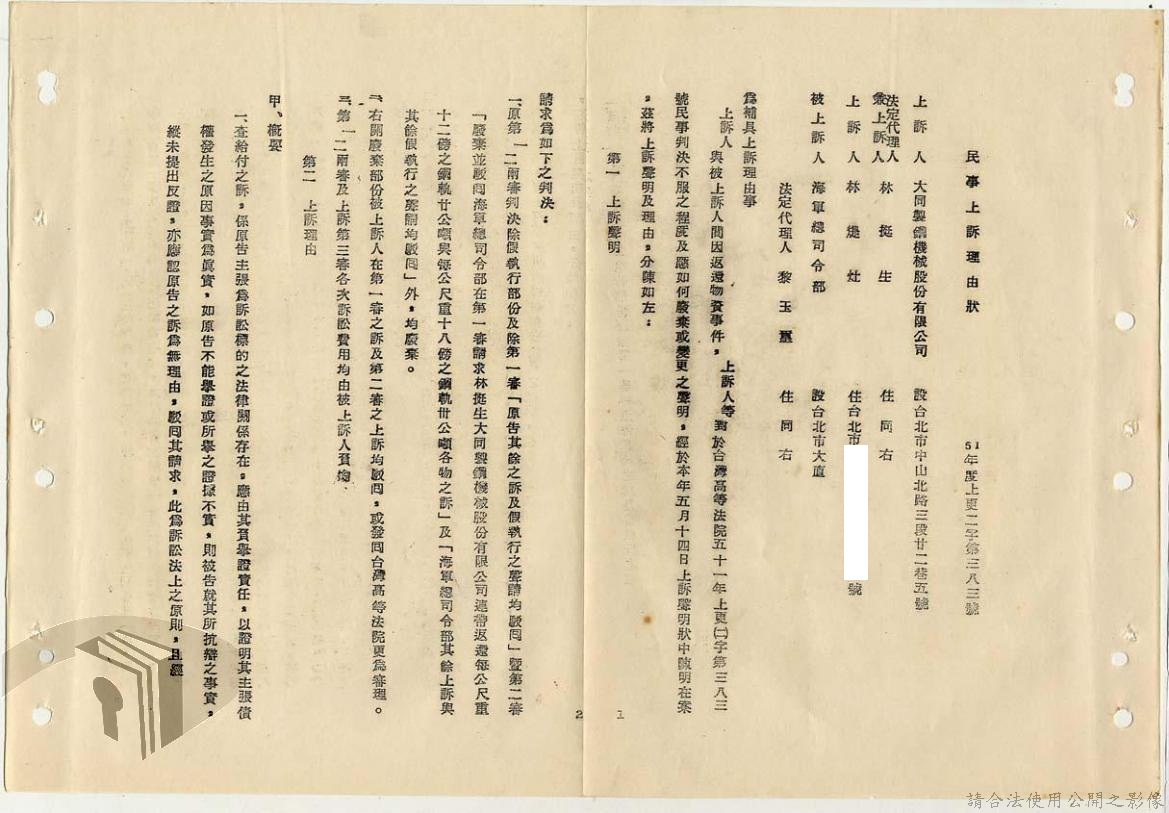 民事上訴理由狀
51年度上更二字第三八三號
上訴人 大同製鋼機械股份有限公司 設台北市中山北路三段廿二巷五號
法定代理人
兼上訴人 林挺生 住同右
上訴人 林煶灶 住台北市 號
被上訴人 海軍總司令部 設台北市大直
法定代理人 黎玉璽 住同右
為補具上訴理由事
上訴人與被上訴人間因返還物資事件,上訴人等對於台灣高等法院五十一年上更㈡字第三八三
號民事判決不服之程度及應如何廢棄或變更之聲明,經於本年五月十四日上訴聲明狀中陳明在案
,茲將上訴聲明及理由,分陳如左:
第一 上訴聲明
1
2
請求為如下之判決:
一、原第一二兩審判決除假執行部份及除第一審「原告其餘之訴及假執行之聲請均駁回」暨第二審
「廢棄並駁回海軍總司令部在第一審請求林挺生大同製鋼機械股份有限公司連帶返還每公尺重
十二磅之鋼軌廿公噸與每公尺重十八磅之鋼軌卅公噸各物之訴」及「海軍總司令部其餘上訴與
其餘假執行之聲請均駁回」外,均廢棄。
二、右開廢棄部份被上訴人在第一審之訴及第二審之上訴均駁回,或發回台灣高等法院更為審理。
三、第一二兩審及上訴第三審各次訴訟費用均由被上訴人負擔
第二 上訴理由
甲、概要
一、查給付之訴,係原告主張為訴訟標的之法律關係存在,應由其負舉證責任,以證明其主張債
權發生之原因事實為真實,如原告不能舉證或所舉之證據不實,則被告就其所抗辯之事實,
縱未提出反證,亦應認原告之訴為無理由,駁回其請求,此為訴訟法上之原則,且經
請合法使用公開之影像